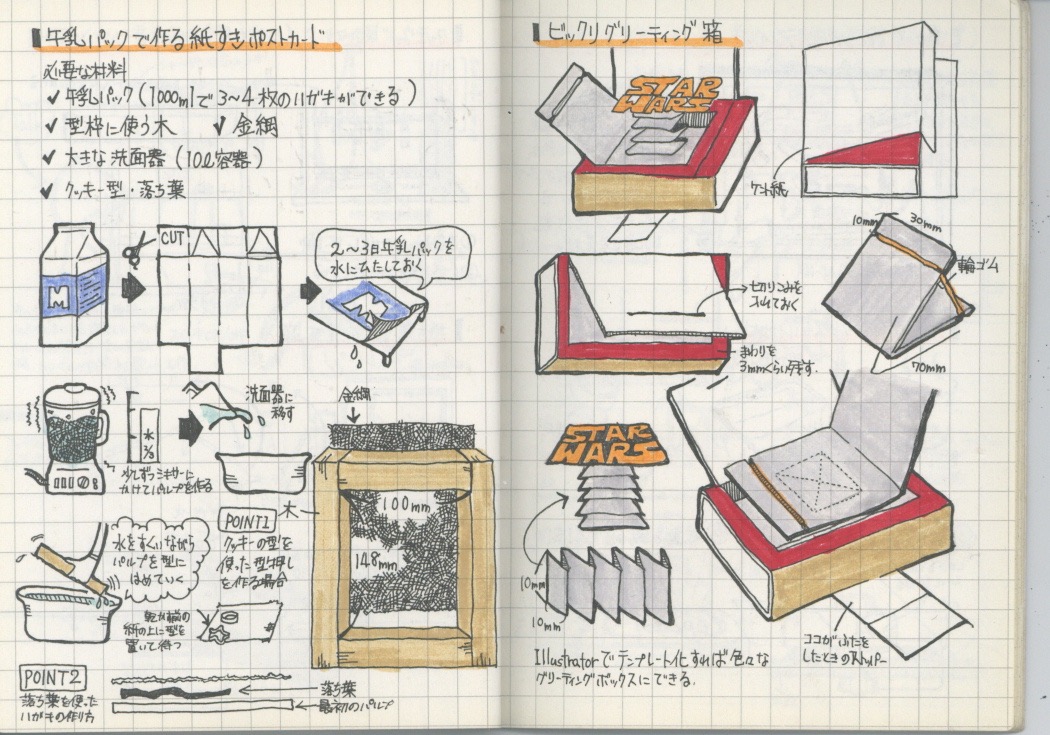 牛乳パックで作る紙すきポストカード
必要な材料
✓ 牛乳パック(1000mlで3〜4枚のハガキができる)
✓ 型枠に使う木 ✓ 金綱
✓ 大きな洗面器(10ℓ容器)
✓ クッキー型・落ち葉
CUT
2〜3日牛乳パックを
水にひたしておく
M
M
水
2/3
少しずつミキサーに
かけてパルプを作る
洗面器に
移す
金綱
木
100mm
148mm
水をすくいながら
パルプを型に
はめていく
POINT1
クッキーの型を
使った型押し
を作る場合
乾かす前の
紙の上に型を
置いて待つ
POINT2
落ち葉を使った
ハガキの作り方
落ち葉
最初のパルプ
ビックリグリーティング箱
STAR
WARS
ケント紙
切りこみを
入れておく
まわりを
3mmくらい残す.
10mm
30mm
輪ゴム
70mm
STAR
WARS
10mm
10mm
ココがふたを
したときのストッパー
Illustratorでテンプレート化すれば色々な
グリーティングボックスにできる.